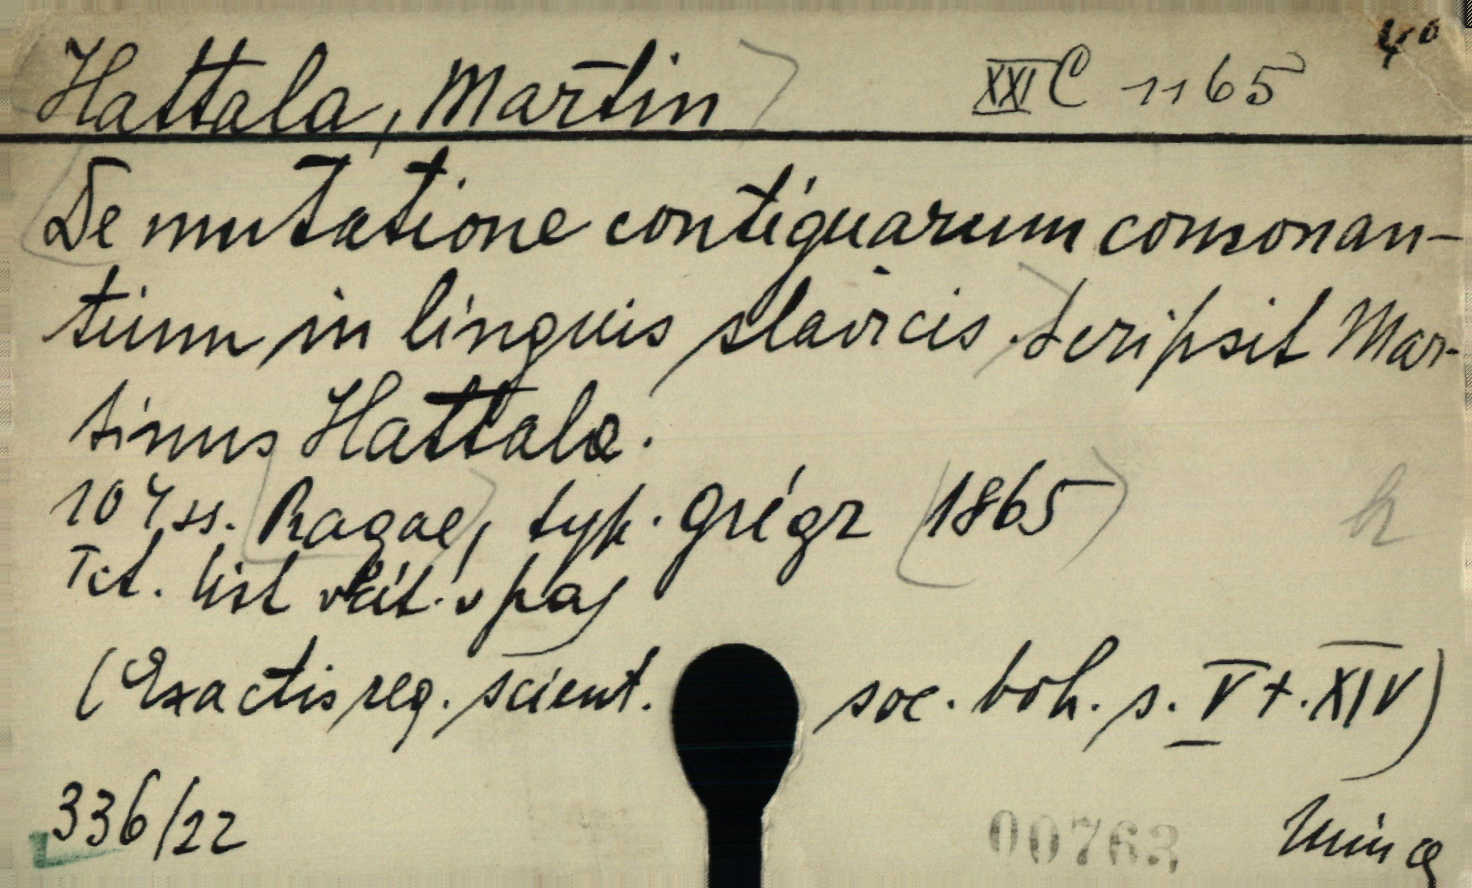 4°
Hattala, Martin XXI C 1165
De mutatione contiguarum consonan-
tium in linguis slavicis. Scripsit Mar-
tinus Hattala.
104 ss. Pragae, typ. Grégr 1865
Tit. list v pag
(Ex actis reg. scient. soc. boh. s. V t. XIV)
336/22 00763